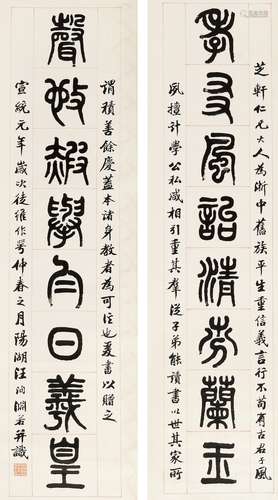 芝軒仁兄大人為浙中舊族平生重信義言行不苟有古君子風
孝友風詒清芬蘭玉
夙擅計學公私咸相引重其羣從子弟能讀書以世其家所
謂積善餘慶蓋本諸身教者為可信也爰書以贈之
聲今日羲皇
宣統元年歲次徒維作噩仲春之月陽湖汪洵淵若并識